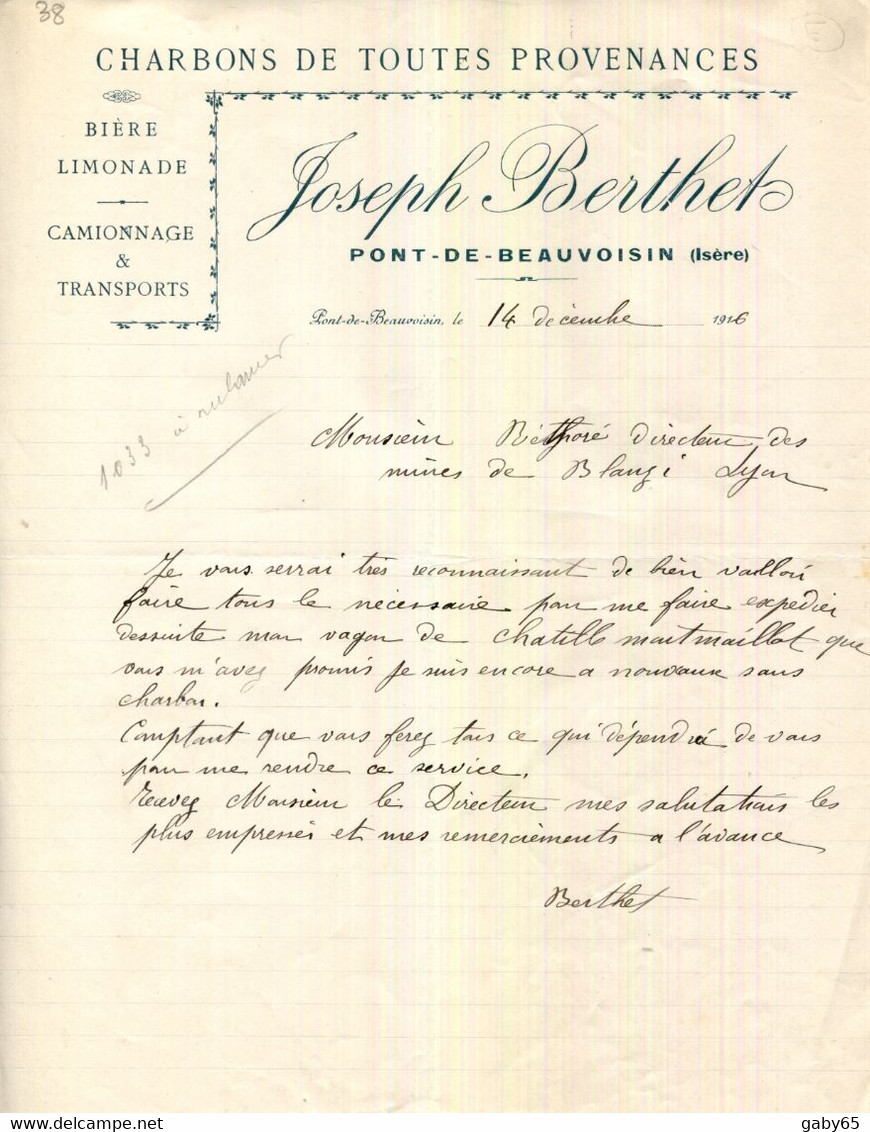 38
CHARBONS DE TOUTES PROVENANCES
BIÈRE
LIMONADE
CAMIONNAGE
&
TRANSPORTS
Joseph Berthet
PONT-DE-BEAUVOISIN (Isère)
Pont-de-Beauvoisin, le 14 décembre 1916
1033 à
Monsieur Réthoré directeur des
mines de Blanzi Lyon
Je vous serrai très reconnaissant de bien vailloir
faire tous le nécessaire pour me faire expedier
dessuite mon vagon de chatille montmaillot que
vous m'avez promis je suis encore a nouveaux sans
charbon.
Comptant que vous ferez tous ce qui dépendra de vous
pour me rendre ce service.
recevez Monsieur le Directeur mes salutations les
plus empressés et mes remerciements a l'avance
Berthet
gaby65